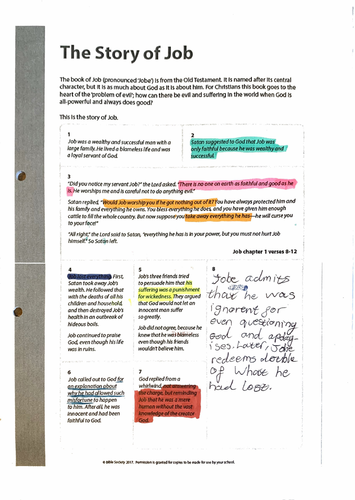 The Story of Job
The book of Job (pronounced 'Jobe') is from the Old Testament. It is named after its central
character, but it is as much about God as it is about him. For Christians this book goes to the
heart of the 'problem of evil'; how can there be evil and suffering in the world when God is
all-powerful and always does good?
This is the story of Job.
1
Job was a wealthy and successful man with a
large family. He lived a blameless life and was
a loyal servant of God.
2
Satan suggested to God that Job was
only faithful because he was wealthy and
successful.
3
"Did you notice my servant Job?" the Lord asked. "There is no one on earth as faithful and good as he
is. He worships me and is careful not to do anything evil."
Satan replied, "Would Job worship you if he got nothing out of it? You have always protected him and
his family and everything he owns. You bless everything he does, and you have given him enough
cattle to fill the whole country. But now suppose you take away everything he has—he will curse you
to your face!"
"All right," the Lord said to Satan, "everything he has is in your power, but you must not hurt Job
himself." So Satan left.
Job chapter 1 verses 8-12
4
Job lost everything. First,
Satan took away Job's
wealth. He followed that
with the deaths of all his
children and household,
and then destroyed Job's
health in an outbreak of
hideous boils.
Job continued to praise
God, even though his life
was in ruins.
5
Job's three friends tried
to persuade him that his
suffering was a punishment
for wickedness. They argued
that God would not let an
innocent man suffer
so greatly.
Job did not agree, because he
knew that he was blameless
even though his friends
wouldn't believe him.
6
Job called out to God for
an explanation about
why he had allowed such
misfortune to happen
to him. After all, he was
innocent and had been
faithful to God.
7
God replied from a
whirlwind, not answering
the charge, but reminding
Job that he was a mere
human without the vast
knowledge of the creator
God.
8
Jobe admits
that he was
ignorent for
even questioning
God and apolog-
ises. Later, Jobe
redeems double
of what he
had lost.
© Bible Society 2017. Permission is granted for copies to be made for use by your school.